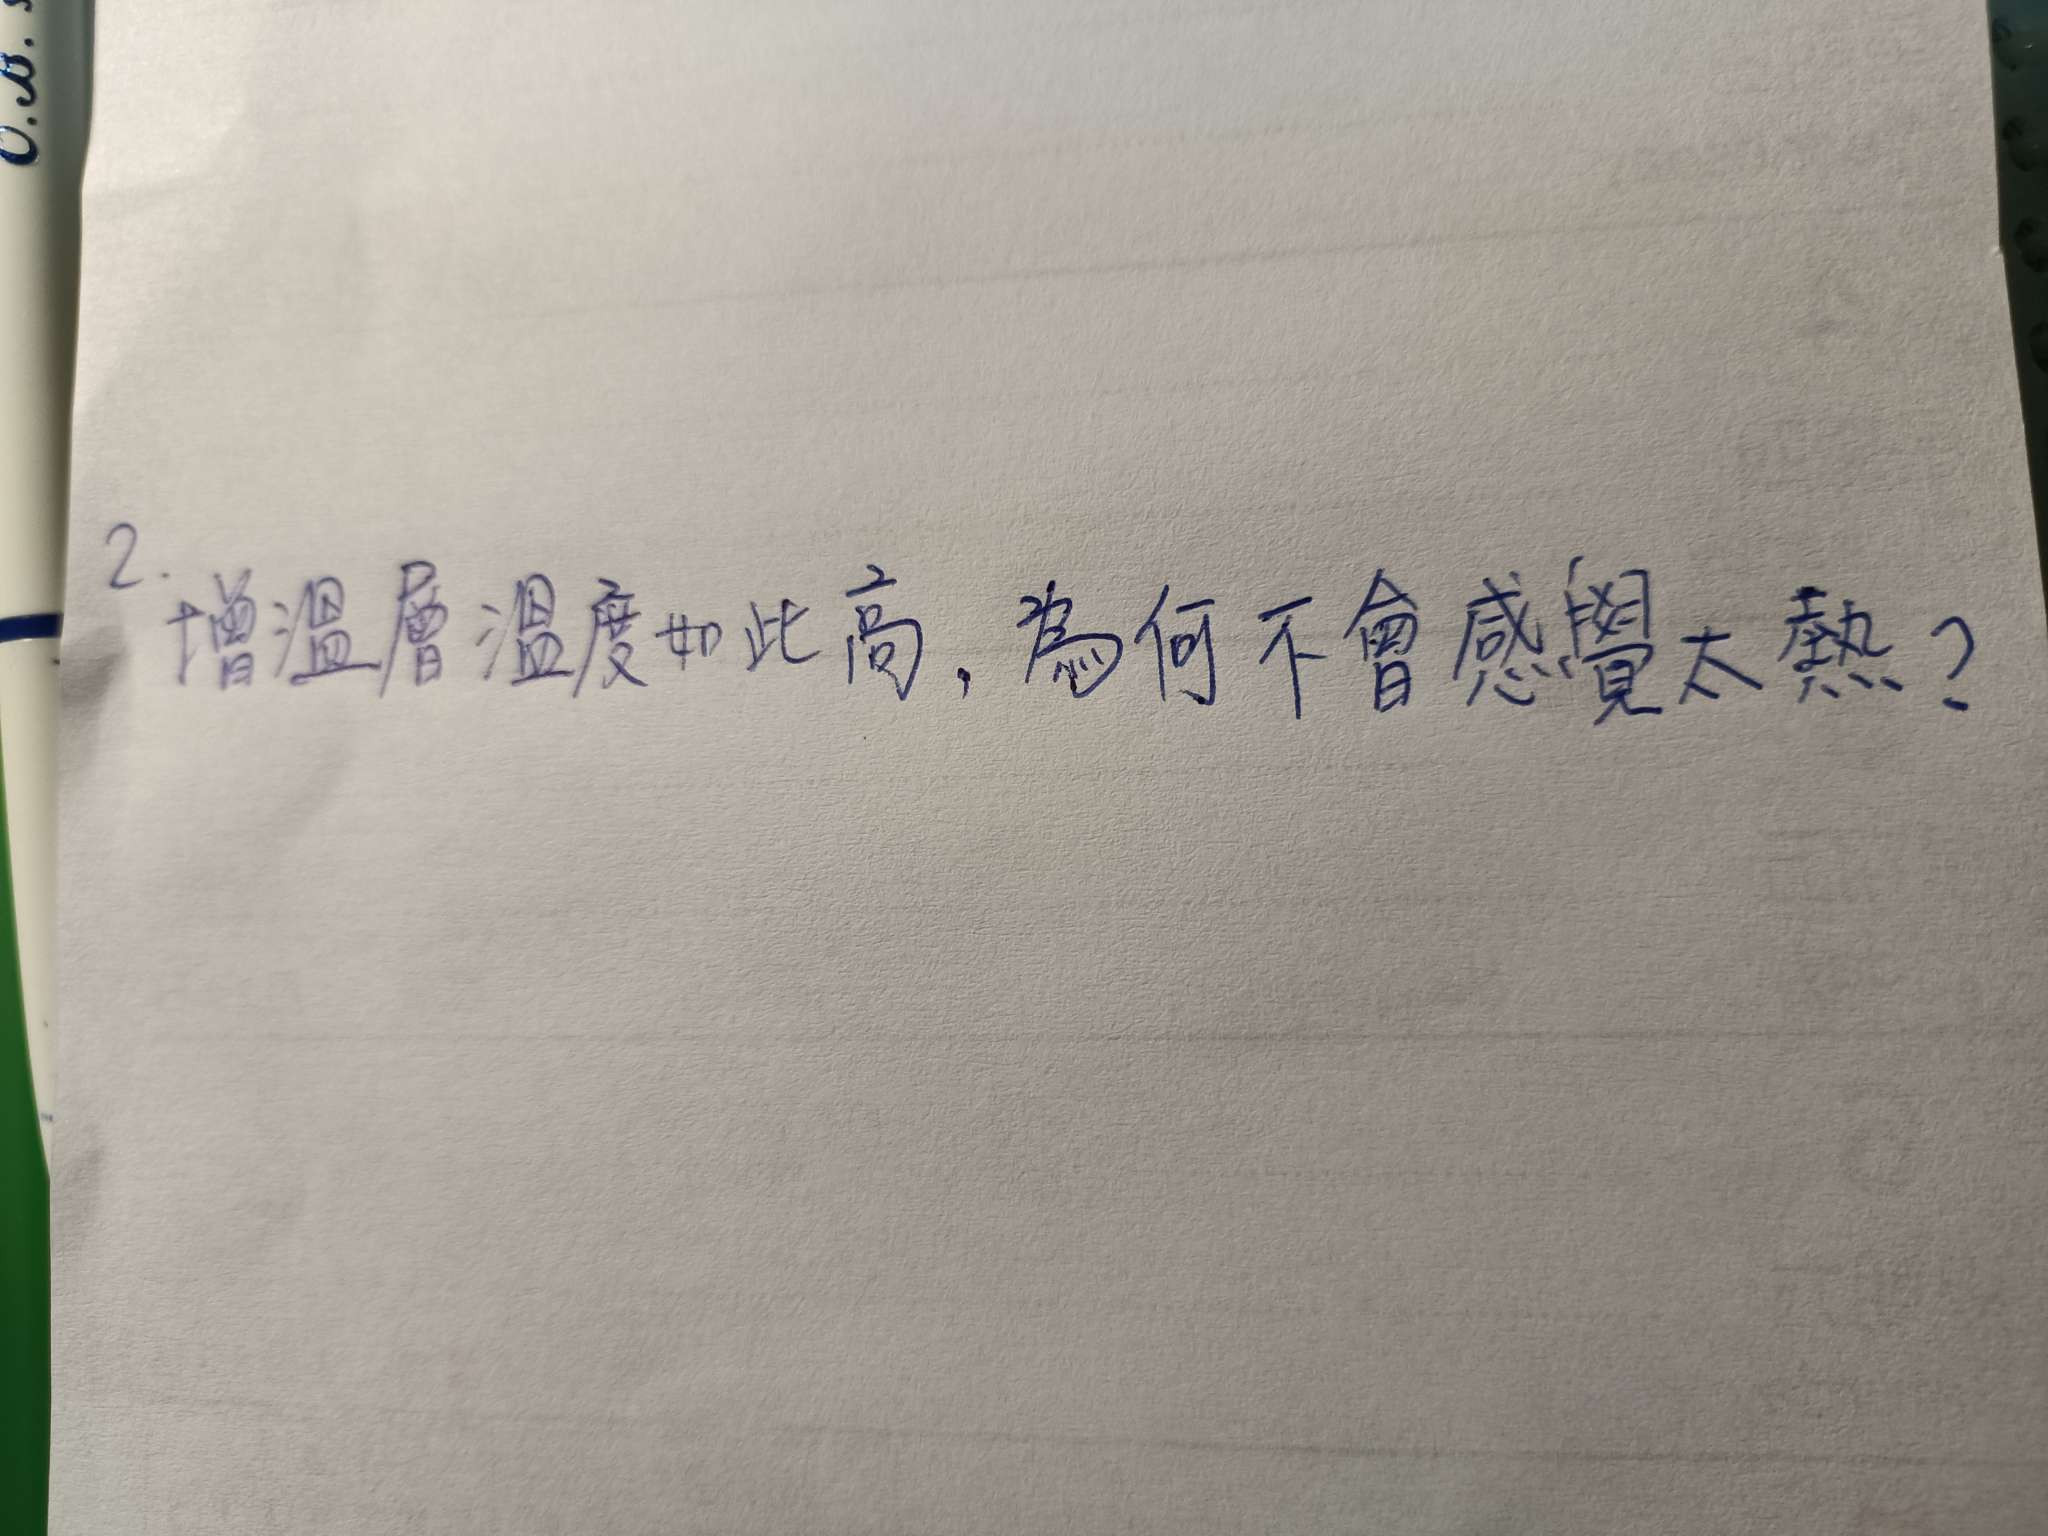 2. 增溫層溫度如此高，為何不會感覺太熱？